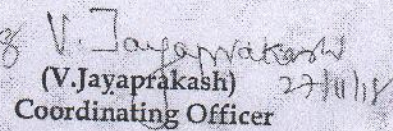 V. Jayaprakash
(V.Jayaprakash) 27/11/18
Coordinating Officer